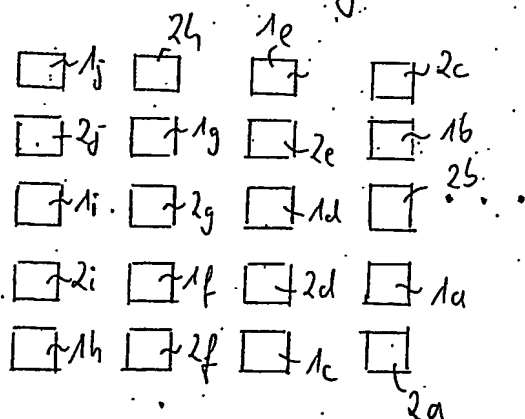 1j 2h 1e 2c
2j 1g 2e 1b
1i 2g 1d 2b
2i 1f 2d 1a
1h 2f 1c 2a